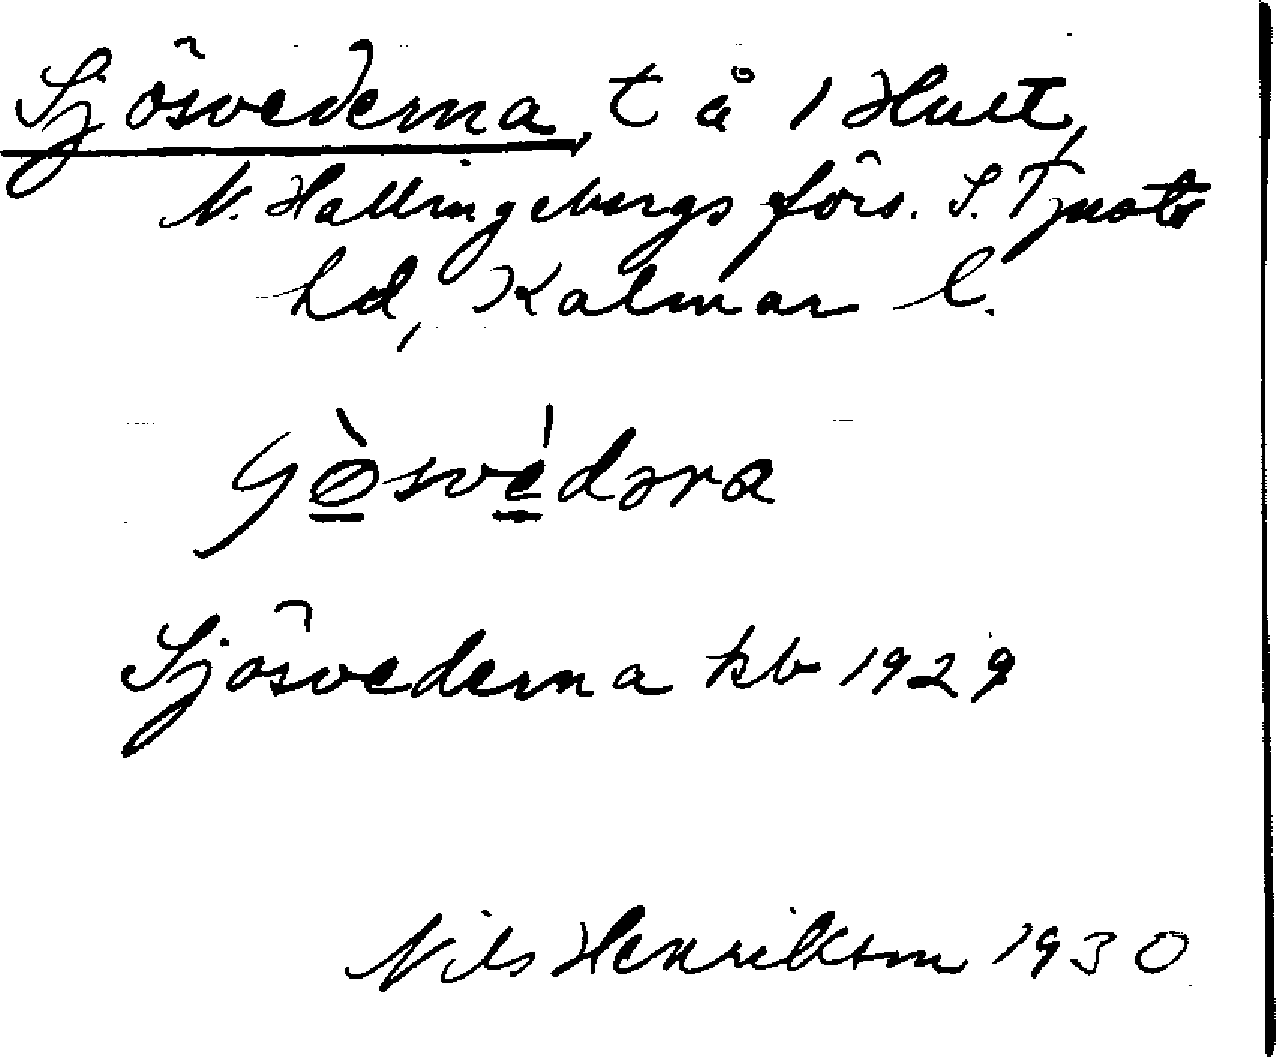 Sjösvederna, t å 1 Hult,
N. Hallingebergs förs. S. Tjusts
hd, Kalmar l.
Sjösvederna kb 1929
Nils Henrikson 1930